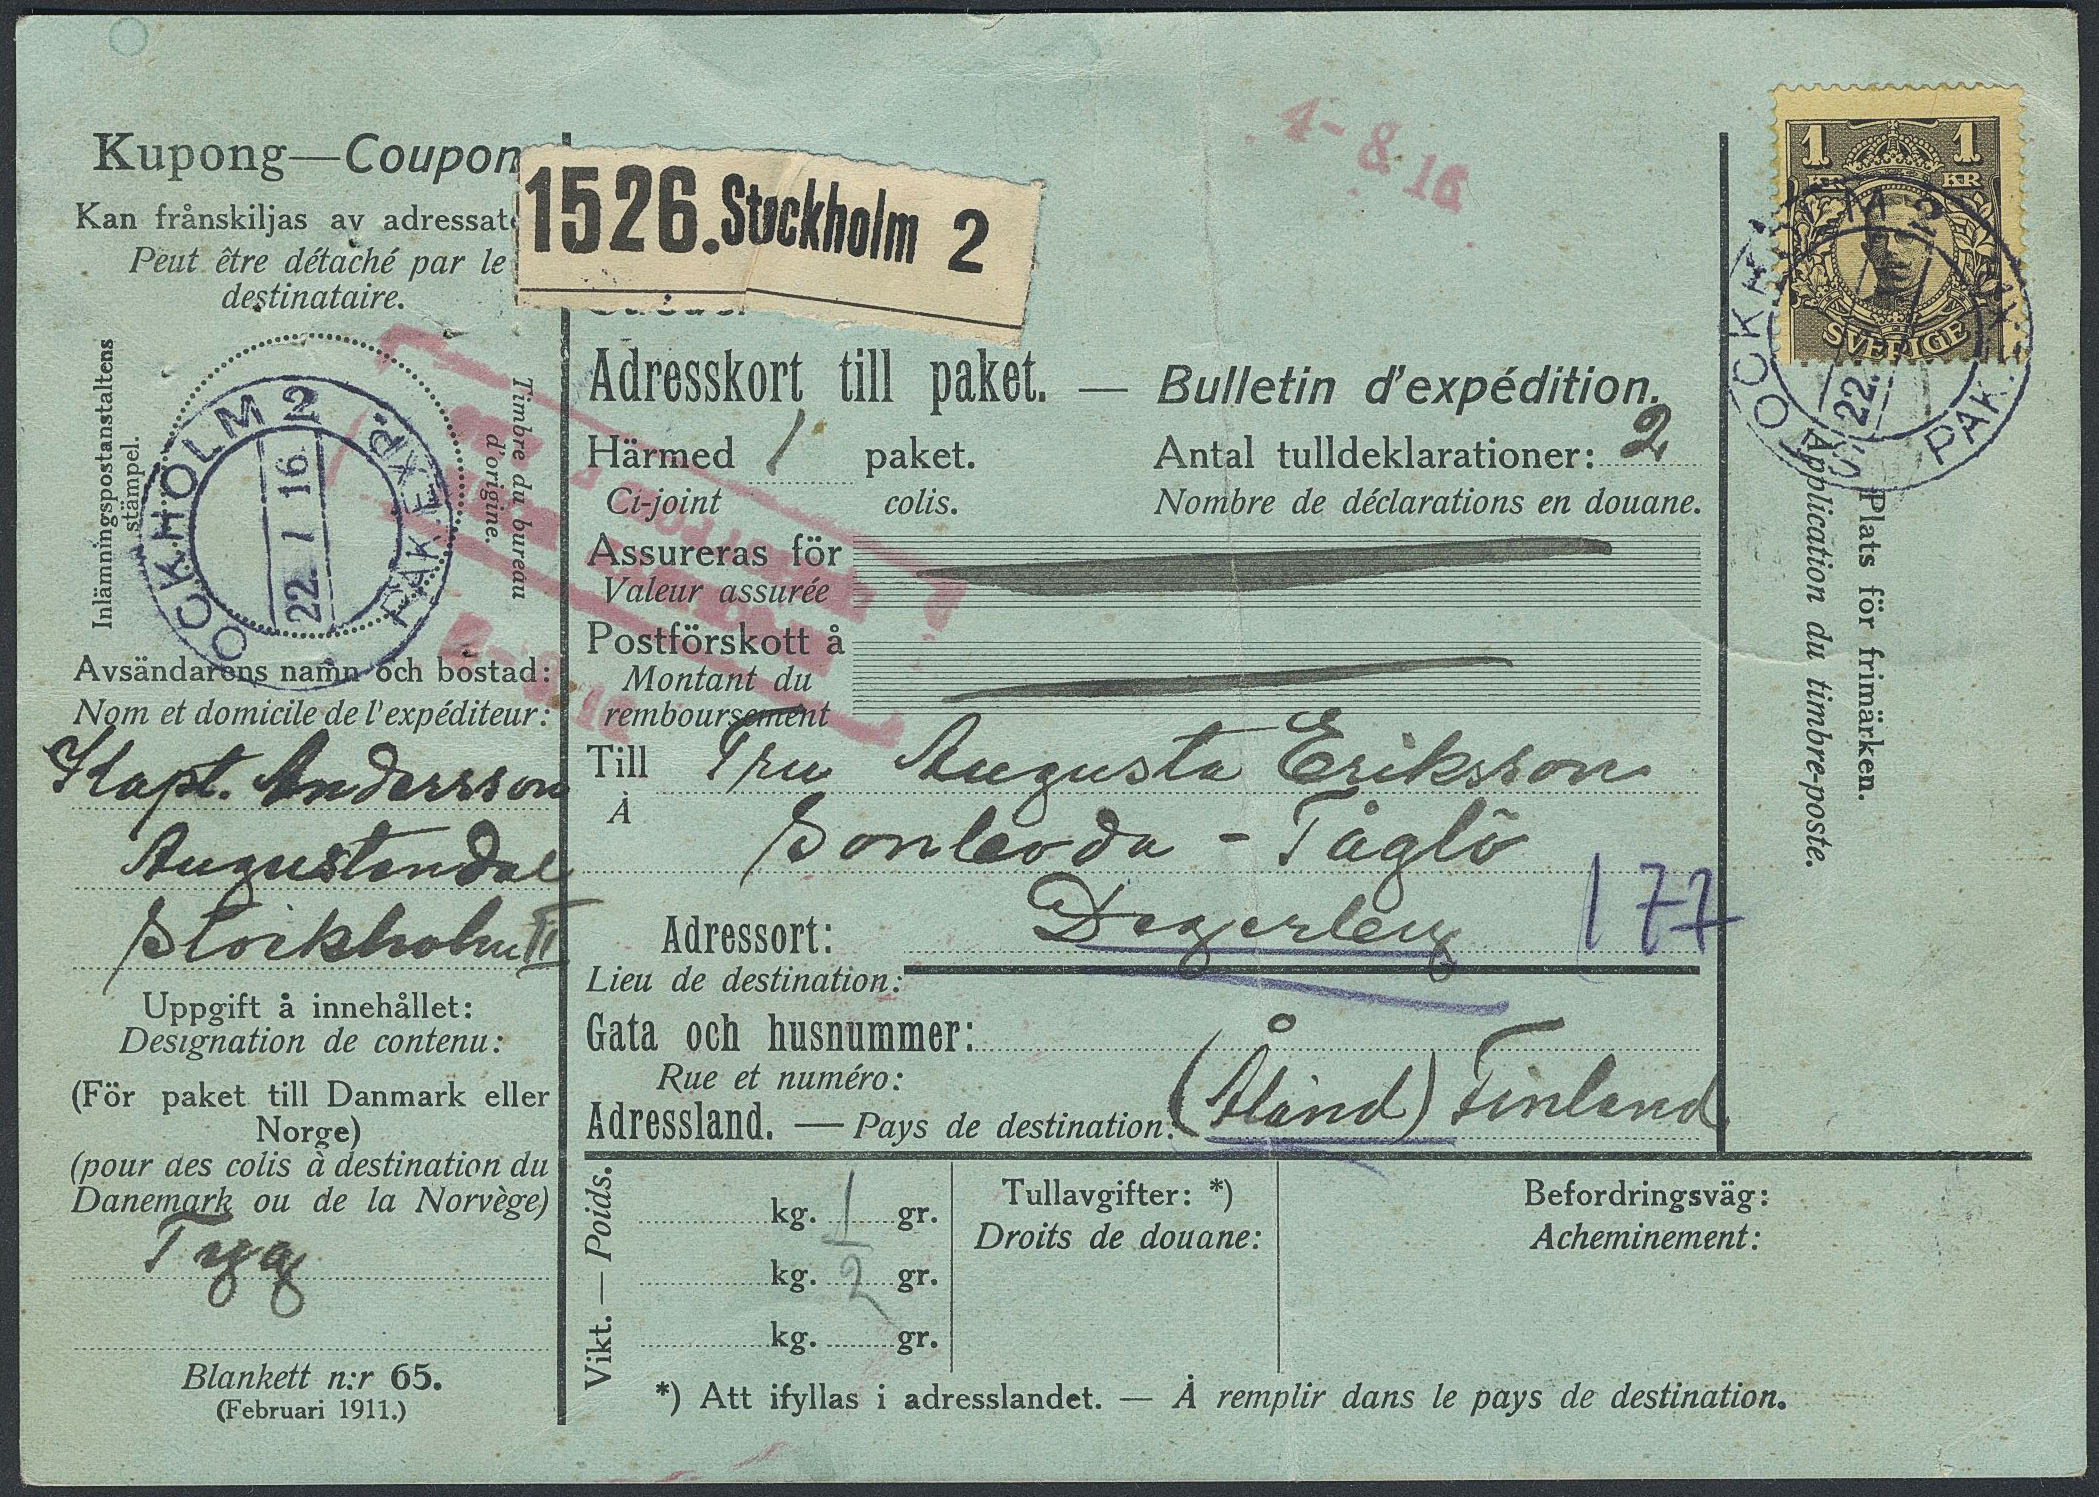 Kupong—Coupon
Kan frånskiljas av adressat
Peut être détaché par le
destinataire.
1526. Stockholm 2
4-8 16
1 KR 1 KR
SVERIGE
STOCKHOLM 2
22. 1 16
PAK.EXP.
Inlämningspostanstaltens
stämpel.
Timbre du bureau
d'origine.
STOCKHOLM 2
22.
PAK.EXP.
Adresskort till paket. — Bulletin d'expédition.
Härmed 1 paket.
Ci-joint colis.
Antal tulldeklarationer: 2
Nombre de déclarations en douane.
Assureras för
Valeur assurée
Postförskott å
Montant du
remboursement
Plats för frimärken.
Application du timbre-poste.
Avsändarens namn och bostad:
Nom et domicile de l'expéditeur:
Kapt. Andersson
Augustendal
Stockholm II
Till Fru Augusta Eriksson
À
Sonboda - Töglö
Adressort: Degerby
177
Lieu de destination:
Gata och husnummer:
Rue et numéro:
Adressland. — Pays de destination: (Åland) Finland
Uppgift å innehållet:
Designation de contenu:
(För paket till Danmark eller
Norge)
(pour des colis à destination du
Danemark ou de la Norvège)
Tyg
Blankett n:r 65.
(Februari 1911.)
Vikt. — Poids.
kg. 1 gr.
kg. 2 gr.
kg. gr.
Tullavgifter: *)
Droits de douane:
Befordringsväg:
Acheminement:
*) Att ifyllas i adresslandet. — À remplir dans le pays de destination.